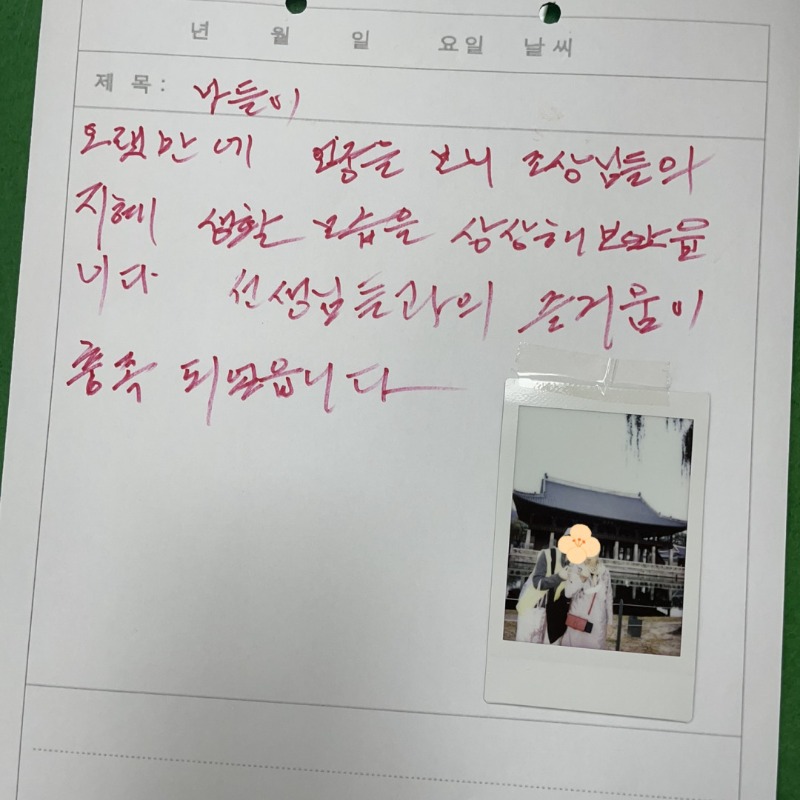 년 월 일 요일 날씨
제 목: 나들이
오랫만에 고궁을 보니 조상님들의
지혜 생활 모습을 상상해 보았읍
니다 선생님들과의 즐거움이
충족 되었읍니다